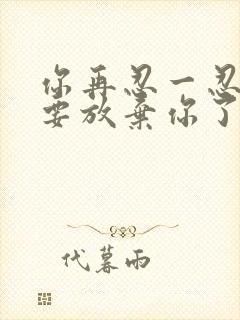 你再忍一忍
要放棄你了
代暮雨